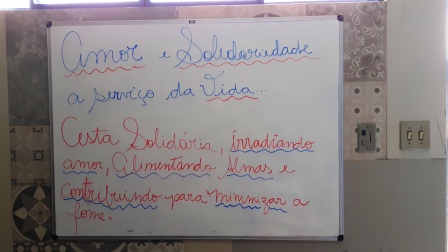 Amor e Solidariedade
a serviço da Vida...
Cesta Solidária, irradiando
amor, Alimentando Almas e
contribuindo para minimizar a
fome.